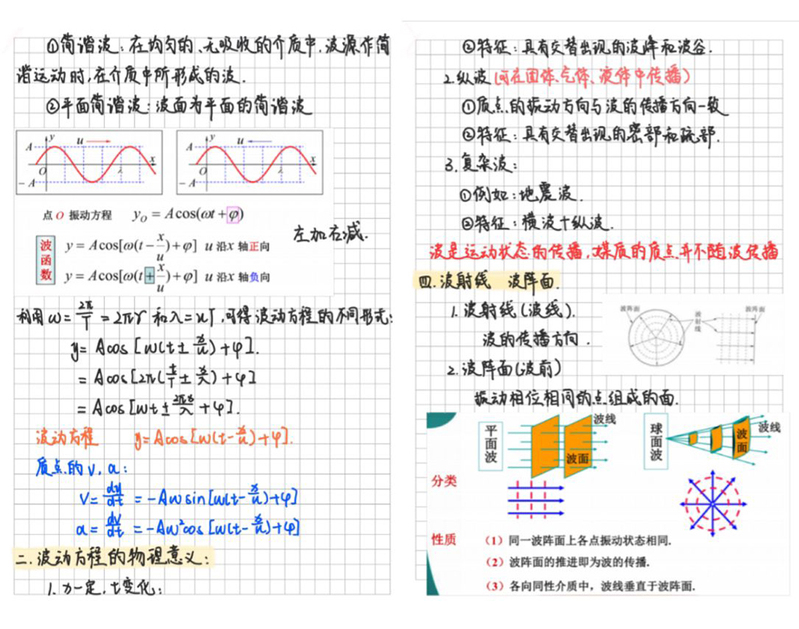 ①简谐波：在均匀的、无吸收的介质中，波源作简
谐运动时，在介质中所形成的波.
②平面简谐波：波面为平面的简谐波
A y u x O λ -A
A y u x O λ -A
点 O 振动方程 y_O = A cos(ωt+φ)
波函数
y = A cos[ω(t - x/u)+φ] u 沿 x 轴正向
y = A cos[ω(t + x/u)+φ] u 沿 x 轴负向
左加右减.
利用 ω = 2π/T = 2πγ 和 λ = uT，可得波动方程的不同形式：
y = Acos[ω(t ± x/u)+φ].
= Acos[2π(t/T ± x/λ)+φ]
= Acos[ωt ± 2πx/λ + φ].
波动方程 y = Acos[ω(t - x/u)+φ].
质点的 v, a：
v = dy/dt = -Aωsin[ω(t - x/u)+φ]
a = dv/dt = -Aω²cos[ω(t - x/u)+φ]
二. 波动方程的物理意义：
1. x一定, t变化：
②特征：具有交替出现的波峰和波谷.
2. 纵波（可在固体、气体、液体中传播）
①质点的振动方向与波的传播方向一致
②特征：具有交替出现的密部和疏部.
3. 复杂波：
①例如：地震波.
②特征：横波+纵波.
波是运动状态的传播，媒质的质点并不随波传播
四. 波射线 波阵面.
1. 波射线（波线）.
波的传播方向.
波阵面 波射线 波阵面
2. 波阵面（波前）
振动相位相同的点组成的面.
分类
平面波 波线 波面
球面波 波线 波面
性质 （1）同一波阵面上各点振动状态相同.
（2）波阵面的推进即为波的传播.
（3）各向同性介质中，波线垂直于波阵面.